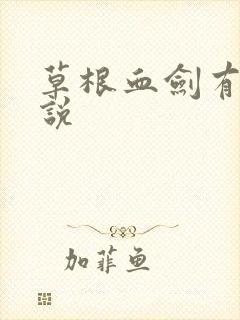 草根血劍有
說
加菲鱼